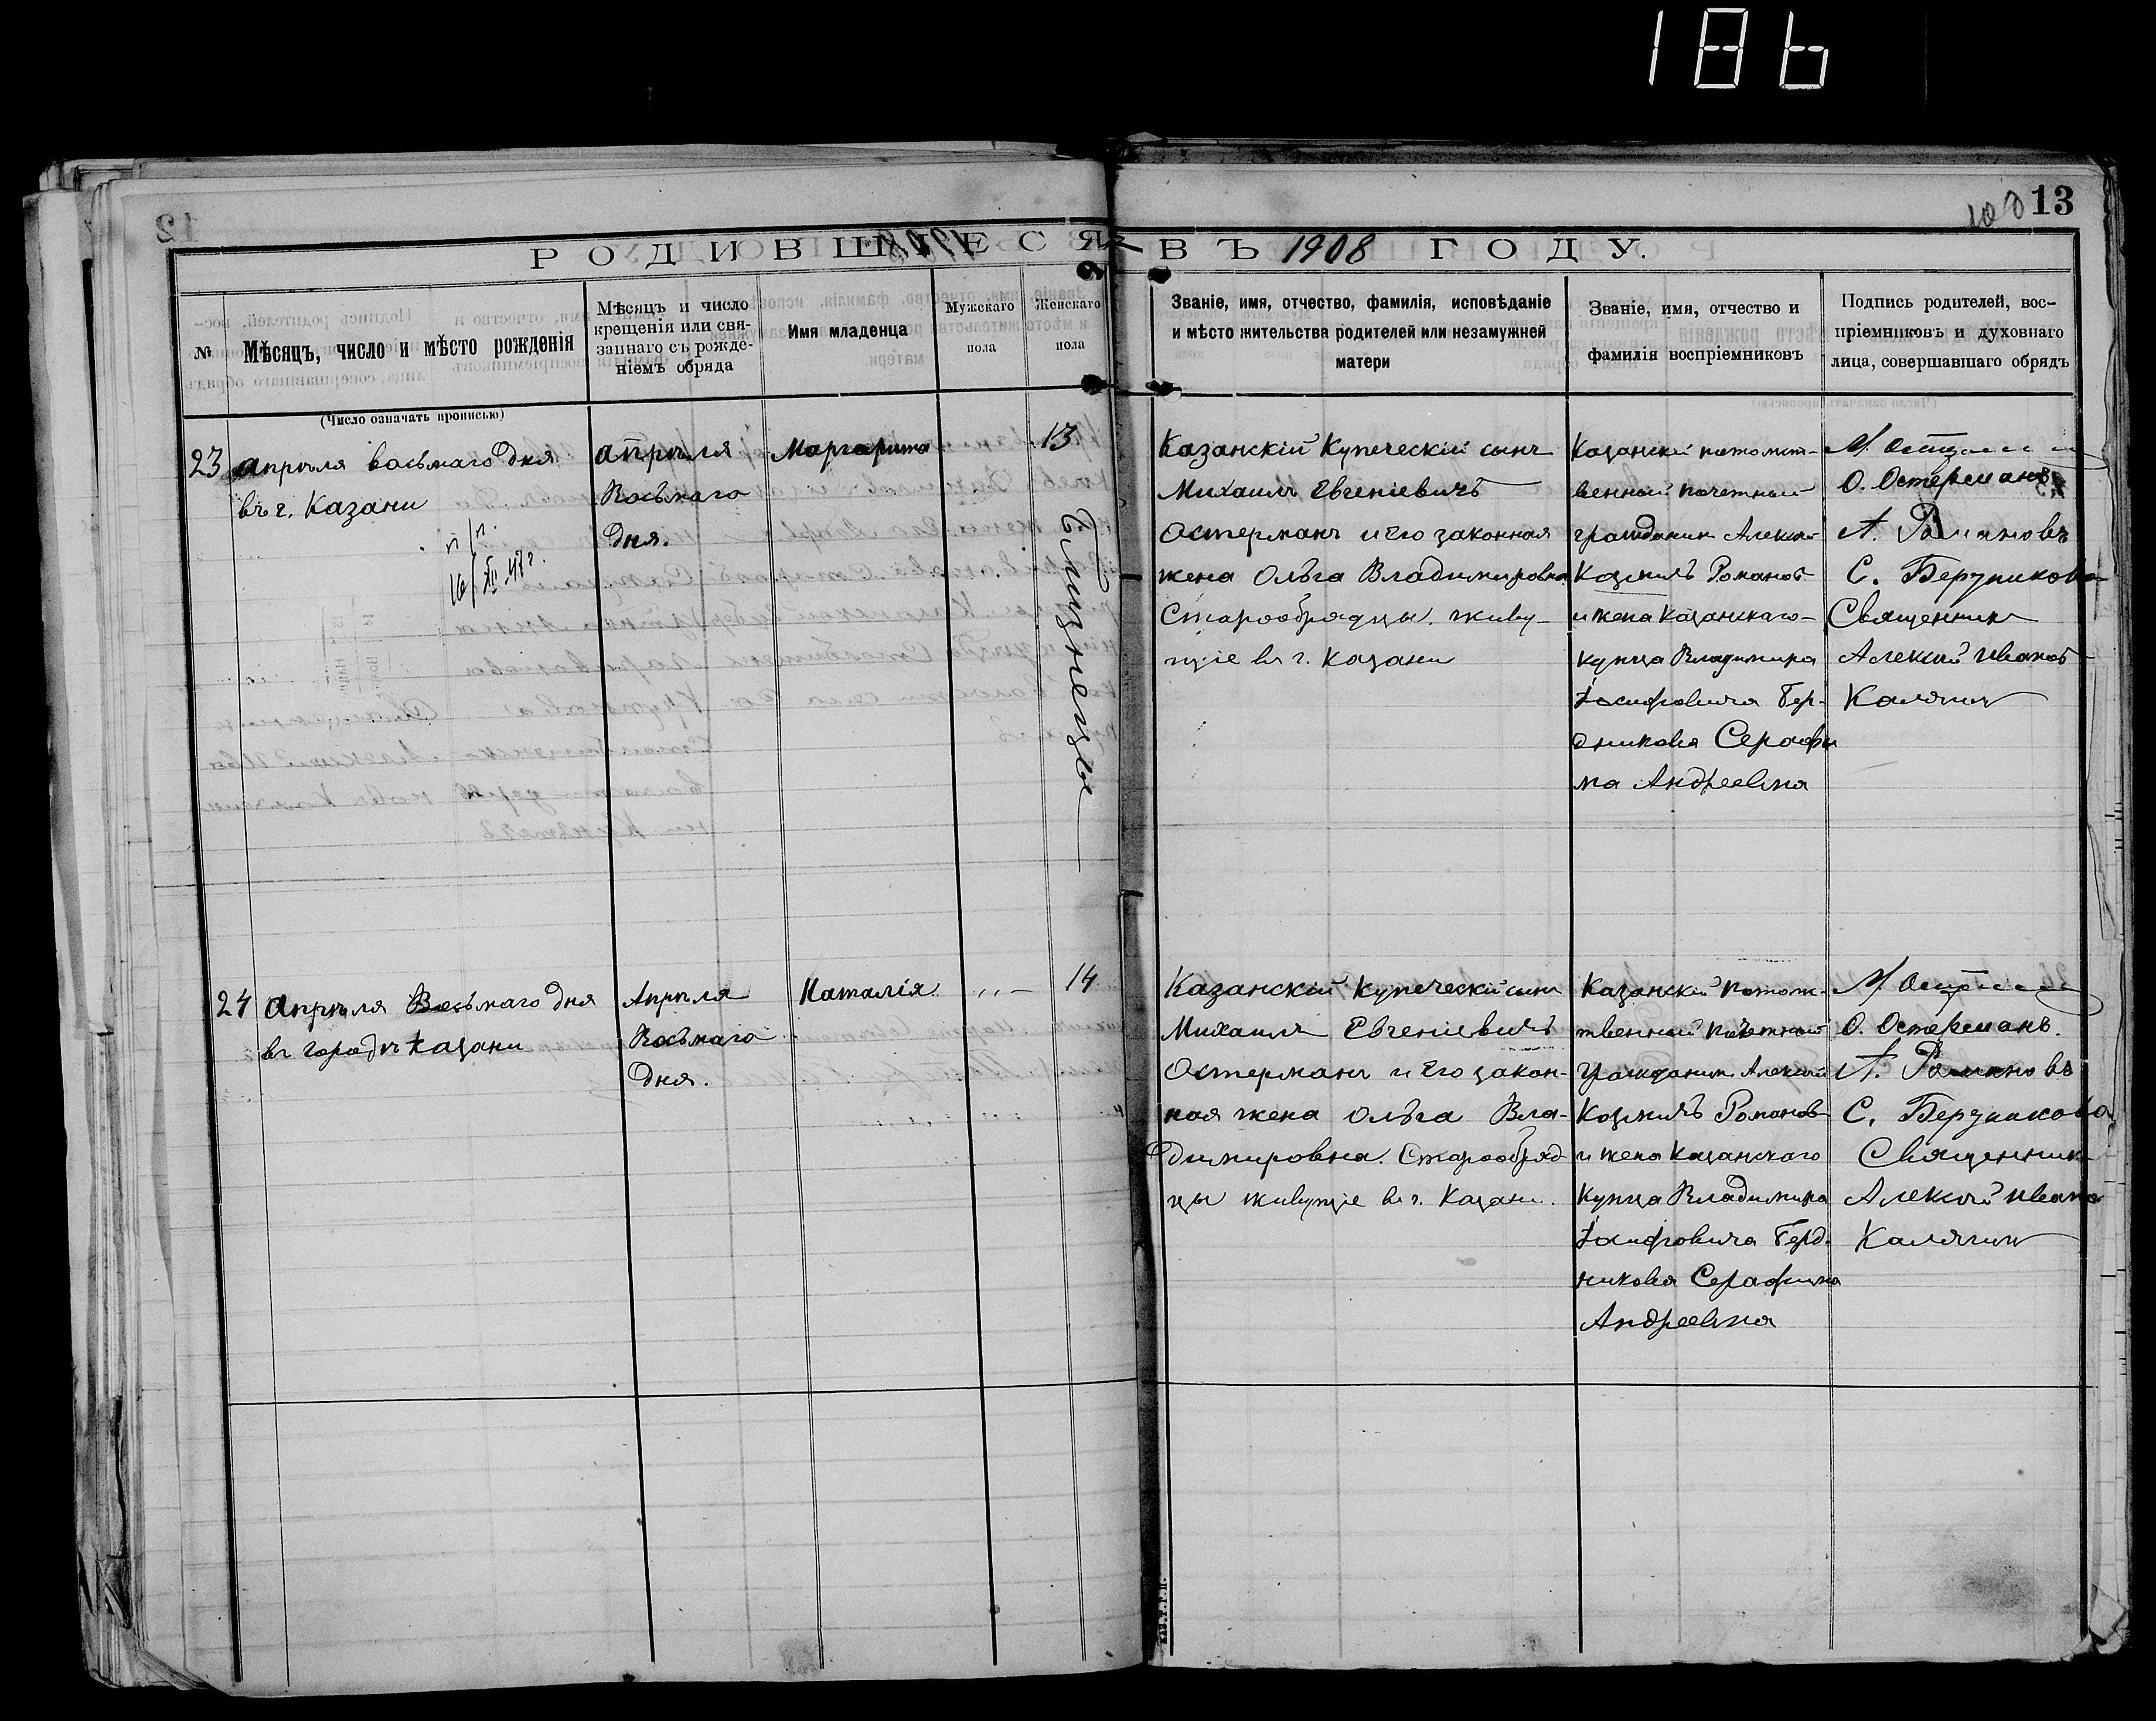 186
13
РОДИВШІЕСЯ ВЪ 1908 ГОДУ.
№
Мѣсяцъ, число и мѣсто рожденія
Мѣсяцъ и число
крещенія или свя-
заннаго съ рожде-
ніемъ обряда
Имя младенца
Мужскаго
пола
Женскаго
пола
Званіе, имя, отчество, фамилія, исповѣданіе
и мѣсто жительства родителей или незамужней
матери
Званіе, имя, отчество и
фамилія воспріемниковъ
Подпись родителей, вос-
пріемниковъ и духовнаго
лица, совершавшаго обрядъ
(Число означать прописью)
23
апрѣля восьмаго дня
въ г. Казани
апрѣля
Восьмаго
дня.
Маргарита
13
Близнецы
Казанскій Купеческій сынъ
Михаилъ Евгеніевичъ
Остерманъ и его законная
жена Ольга Владимировна
Старообрядцы. живу-
щіе въ г. Казани
Казанскій потомст-
венный почетный
гражданин Алексѣй
Козмичъ Романов
и жена Казанскаго
купца Владимира
Іосифовича Бер-
дникова Серафи
ма Андреевна
О. Остерманъ
А. Романовъ
С. Бердникова
Священник
Алексѣй Иванов
Калягин
24
Апрѣля Восьмаго дня
въ городѣ Казани
Апрѣля
Восьмаго
дня.
Наталія.
14
Казанскій Купеческій сынъ
Михаилъ Евгеніевичъ
Остерманъ и его закон-
ная жена Ольга Вла-
димировна. Старообряд-
цы живущіе въ г. Казани.
Казанскій потомс-
твенный почетный
гражданин Алексѣй
Козмичъ Романов
и жена Казанскаго
Купца Владимира
Іосифовича Берд-
никова Серафима
Андреевна
О. Остерманъ.
А. Романовъ
С. Бердникова
Священник
Алексѣй Ивано
Калягин